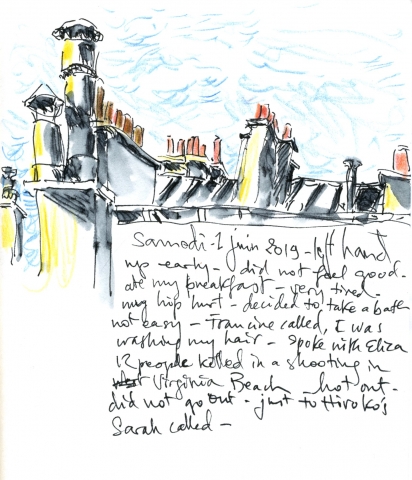 Samedi - 1 juin 2019 - left hand
up early - did not feel good -
ate my breakfast - very tired -
my hip hurt - decided to take a bath
not easy - Francine called, I was
washing my hair - spoke with Eliza
12 people killed in a shooting in
Virginia Beach - hot out -
did not go out - just to Hiroko's
Sarah called -